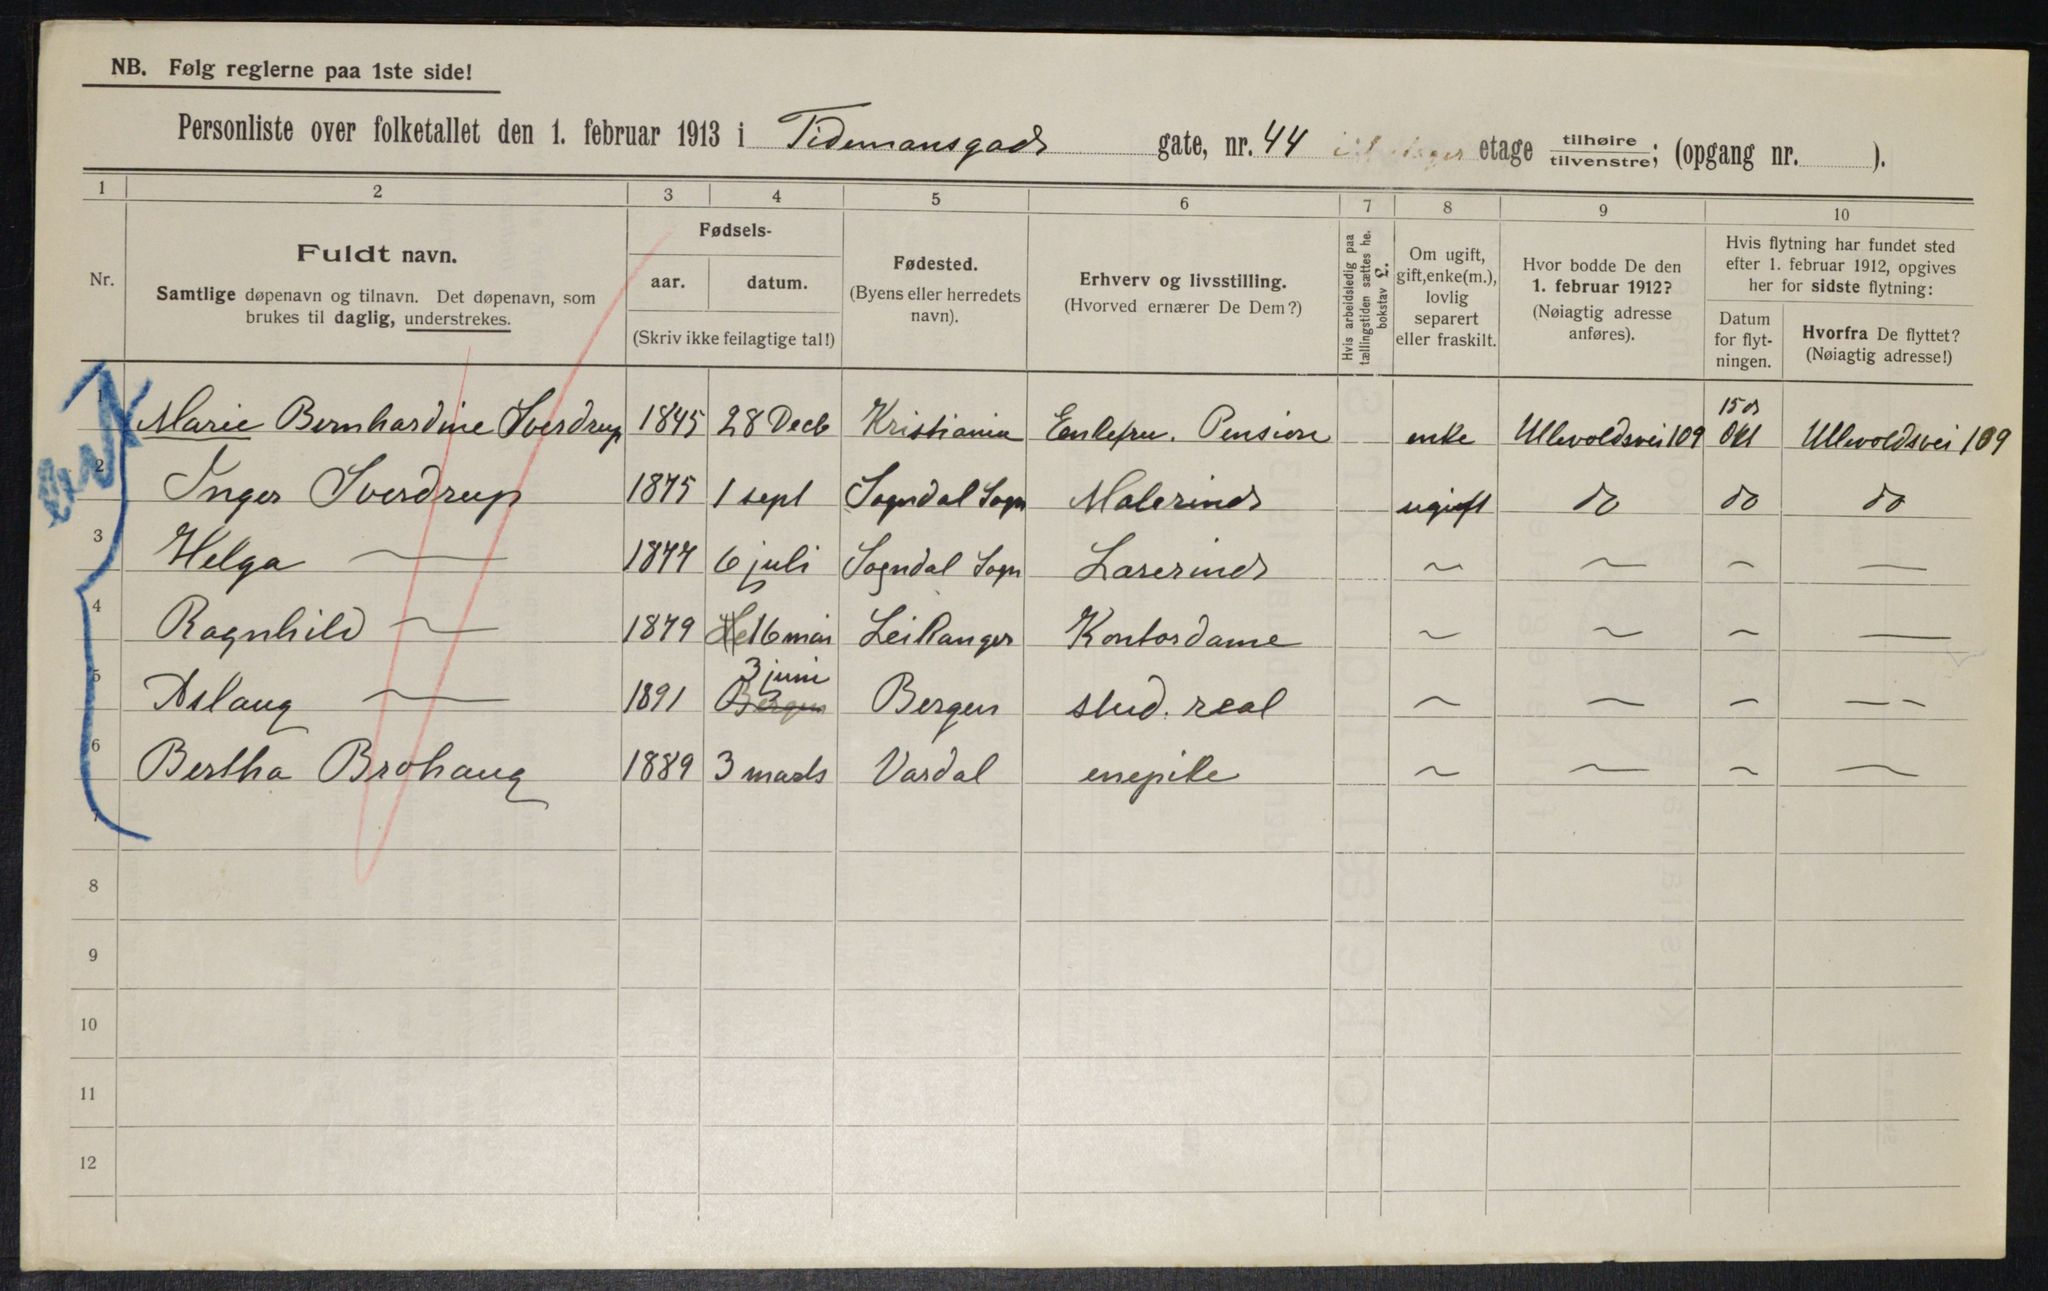 NB. Følg reglerne paa 1ste side!
Personliste over folketallet den 1. februar 1913 i Tidemansgade gate, nr. 44 etage tilhøire/tilvenstre; (opgang nr. ).
1 2 3 4 5 6 7 8 9 10
Nr.
Fuldt navn.
Samtlige døpenavn og tilnavn. Det døpenavn, som
brukes til daglig, understrekes.
Fødsels-
aar. datum.
(Skriv ikke feilagtige tal!)
Fødested.
(Byens eller herredets
navn).
Erhverv og livsstilling.
(Hvorved ernærer De Dem?)
Hvis arbeidsledig paa
tællingstiden sættes he.
bokstav £.
Om ugift,
gift, enke(m.),
lovlig
separert
eller fraskilt.
Hvor bodde De den
1. februar 1912?
(Nøiagtig adresse
anføres).
Hvis flytning har fundet sted
efter 1. februar 1912, opgives
her for sidste flytning:
Datum
for flyt-
ningen.
Hvorfra De flyttet?
(Nøiagtig adresse!)
1 Marie Bernhardine Sverdrup 1845 28 Decb Kristiania Enkefru. Pension enke Ullevoldsvei 109 15 de Okt Ullevoldsvei 109
2 Inger Sverdrup 1875 1 sept Sogndal Sogn Malerinde ugift do do do
3 Helga — 1877 6 juli Sogndal Sogn Lærerinde ~ ~ ~ —
4 Ragnhild — 1879 16 mai Leikanger Kontordame ~ ~ ~ —
5 Aslaug — 1891 3 juni Bergen Bergen stud. real ~ ~ ~ — -
6 Bertha Brohaug 1889 3 marts Vardal enepike ~ ~ ~ —
7
8
9
10
11
12